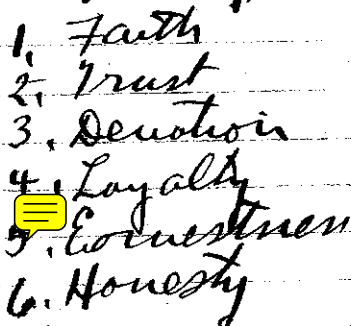 1. Faith
2. Trust
3. Devotion
4. Loyalty
5. Earnestness
6. Honesty